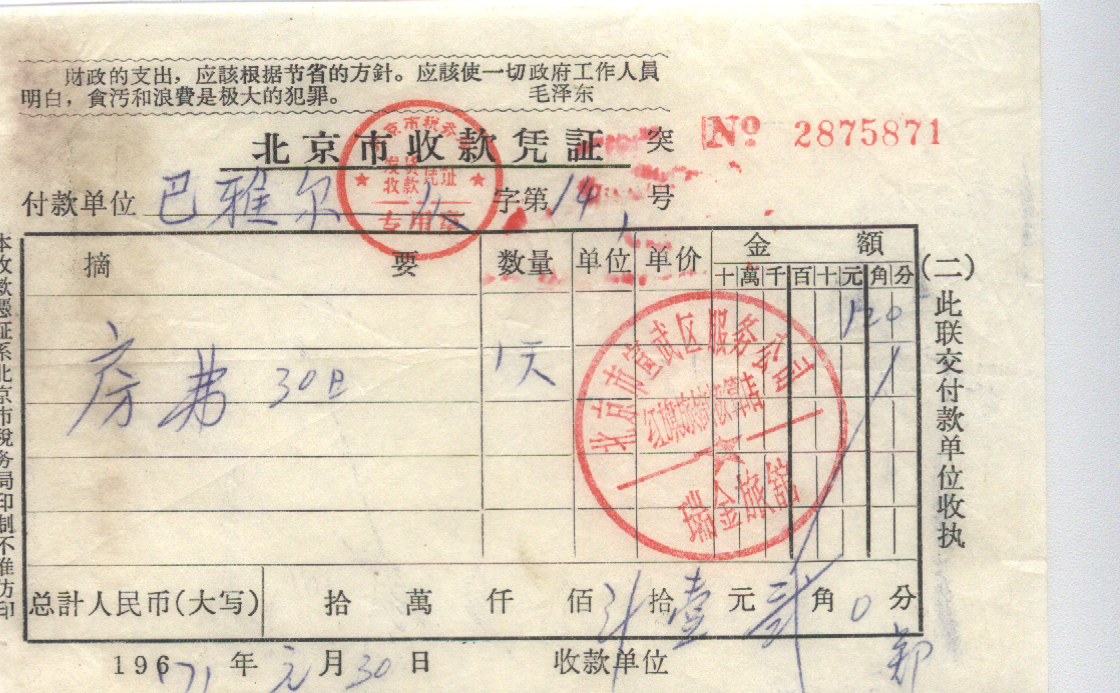 財政的支出，应該根据节省的方針。应該使一切政府工作人員
明白，貪污和浪費是极大的犯罪。 毛泽东
北京市收款凭証 突 № 2875871
付款单位 巴雅尔 字第 14 号
摘要 数量 单位 单价 金額
十 萬 千 百 十 元 角 分
1 2 0
房费 30日 1天
总計人民币(大写) 拾 萬 仟 佰 拾 壹 元 贰 角 0 分
196 71 年 元 月 30 日 收款单位 郑
(二)此联交付款单位收执
本收款憑証系北京市稅务局印制不准仿印
京市税务
发货
收款凭证
专用章
北京市宣武区服务公司
红旗旅馆核算店
瑞金旅館